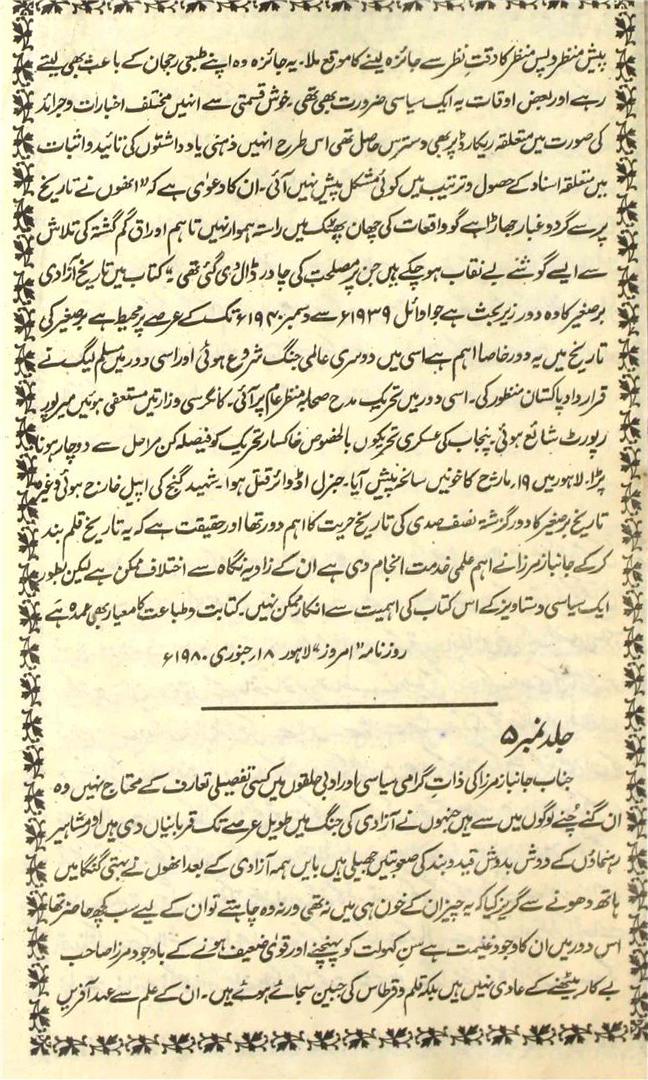 پیش منظر و پس منظر کا دقتِ نظر سے جائزہ لینے کا موقع ملا۔ یہ جائزہ وہ اپنے طبعی رجحان کے باعث بھی لیتے
رہے اور بعض اوقات یہ ایک سیاسی ضرورت بھی تھی۔ خوش قسمتی سے انہیں مختلف اخبارات و جرائد
کی صورت میں متعلقہ ریکارڈ پر بھی دسترس حاصل تھی اس طرح انہیں ذہنی یادداشتوں کی تائید و اثبات
میں متعلقہ اسناد کے حصول و ترتیب میں کوئی مشکل پیش نہیں آئی۔ ان کا دعوٰی ہے کہ "انھوں نے تاریخ
پر سے گرد و غبار جھاڑا ہے گو واقعات کی چھان پھٹک میں راستہ ہموار نہیں تاہم اوراقِ گم گشتہ کی تلاش
سے ایسے گوشے بے نقاب ہو چکے ہیں جن پر مصلحت کی چادر ڈال دی گئی تھی" کتاب میں تاریخ آزادی
برصغیر کا وہ دور زیر بحث ہے جو اوائل ۱۹۳۹ء سے دسمبر ۱۹۴۰ء تک کے عرصے پر محیط ہے برصغیر کی
تاریخ میں یہ دور خاصا اہم ہے اسی میں دوسری عالمی جنگ شروع ہوئی اور اسی دور میں مسلم لیگ نے
قرارداد پاکستان منظور کی۔ اسی دور میں تحریک مدح صحابہ منظر عام پر آئی۔ کانگرسی وزارتیں مستعفی ہوئیں میرپور
رپورٹ شائع ہوئی۔ پنجاب کی عسکری تحریکوں بالخصوص خاکسار تحریک کو فیصلہ کن مراحل سے دوچار ہونا
پڑا۔ لاہور میں ۱۹ مارچ کا خونیں سانحہ پیش آیا۔ جنرل اڈوائر قتل ہوا۔ شہید گنج کی اپیل خارج ہوئی وغیرہ
تاریخ برصغیر کا دور گزشتہ نصف صدی کی تاریخ حریت کا اہم دور تھا اور حقیقت ہے کہ یہ تاریخ قلم بند
کر کے جانباز مرزا نے اہم علمی خدمت انجام دی ہے ان کے زاویہ نگاہ سے اختلاف ممکن ہے لیکن بطور
ایک سیاسی دستاویز کے اس کتاب کی اہمیت سے انکار ممکن نہیں۔ کتابت و طباعت کا معیار بھی عمدہ ہے
روزنامہ "امروز" لاہور ۱۸ جنوری ۱۹۸۰ء
جلد نمبر ۵
جناب جانباز مرزا کی ذاتِ گرامی سیاسی اور ادبی حلقوں میں کسی تفصیلی تعارف کے محتاج نہیں وہ
ان گنے چُنے لوگوں میں سے ہیں جنہوں نے آزادی کی جنگ میں طویل عرصے تک قربانیاں دی ہیں اور مشاہیر
رہنماؤں کے دوش بدوش قید و بند کی صعوبتیں جھیلی ہیں بایں ہمہ آزادی کے بعد انھوں نے بہتی گنگا میں
ہاتھ دھونے سے گریز کیا کہ یہ چیز ان کے خون ہی میں نہ تھی ورنہ وہ چاہتے تو ان کے لیے سب کچھ حاضر تھا
اس دور میں ان کا وجود غنیمت ہے سنِ کہولت کو پہنچنے اور قویٰ ضعیف ہونے کے باوجود مرزا صاحب
بے کار بیٹھنے کے عادی نہیں ہیں بلکہ قلم و قرطاس کی جبین سجائے ہوئے ہیں۔ ان کے علم سے عہد آفریں